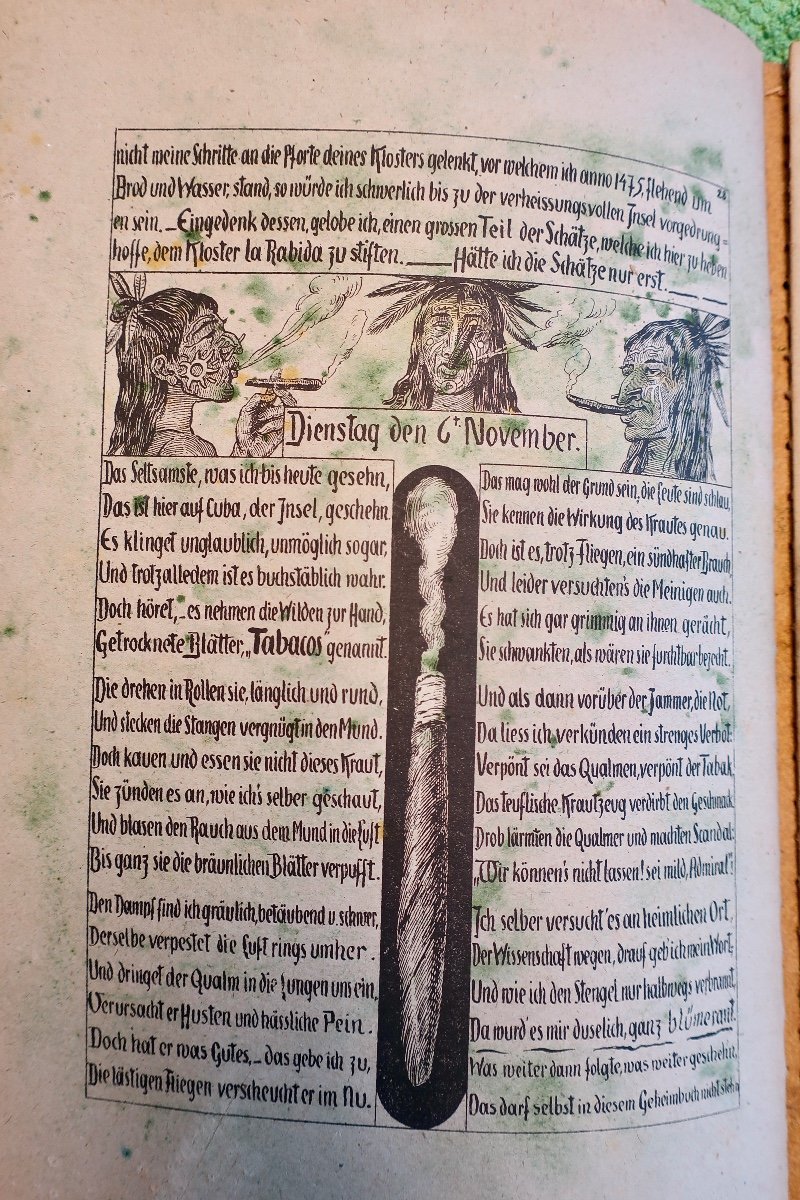 28
nicht meine Schritte an die Pforte deines Klosters gelenkt, vor welchem ich anno 1475, flehend um
Brod und Wasser, stand, so würde ich schwerlich bis zu der verheissungsvollen Insel vorgedrung=
en sein. _ Eingedenk dessen, gelobe ich, einen grossen Teil der Schätze, welche ich hier zu heben
hoffe, dem Kloster la Rabida zu stiften. ___ Hätte ich die Schätze nur erst. __ __
Dienstag den 6t. November.
Das Seltsamste, was ich bis heute gesehn,
Das ist hier auf Cuba, der Insel, geschehn.
Es klinget unglaublich, unmöglich sogar,
Und trotzalledem ist es buchstäblich wahr.
Doch höret, _ es nehmen die Wilden zur Hand,
Getrocknete Blätter, „Tabacos" genannt.
Die drehen in Rollen sie, länglich und rund,
Und stecken die Stangen vergnügt in den Mund.
Doch kauen und essen sie nicht dieses Kraut,
Sie zünden es an, wie ich's selber geschaut,
Und blasen den Rauch aus dem Mund in die Luft
Bis ganz sie die bräunlichen Blätter verpufft.
Den Dampf find ich gräulich, betäubend u. schwer,
Derselbe verpestet die Luft rings umher.
Und dringet der Qualm in die Lungen uns ein,
Verursacht er Husten und hässliche Pein.
Doch hat er was Gutes, _ das gebe ich zu,
Die lästigen Fliegen verscheucht er im Nu.
Das mag wohl der Grund sein, die Leute sind schlau,
Sie kennen die Wirkung des Krautes genau.
Doch ist es, trotz Fliegen, ein sündhafter Brauch
Und leider versuchten's die Meinigen auch.
Es hat sich gar grimmig an ihnen gerächt,
Sie schwankten, als wären sie furchtbar bezecht.
Und als dann vorüber der Jammer, die Not,
Da liess ich verkünden ein strenges Verbot:
Verpönt sei das Qualmen, verpönt der Tabak,
Das teuflische Krautzeug verdirbt den Geschmack.
Drob lärmten die Qualmer und machten Scandal:
„Wir können's nicht lassen! sei mild, Admiral"!
Ich selber versucht' es an heimlichen Ort,
Der Wissenschaft wegen, drauf geb ich mein Wort.
Und wie ich den Stengel nur halbwegs verbrannt,
Da wurd' es mir duselich, ganz blümerant.
Was weiter dann folgte, was weiter geschehn,
Das darf selbst in diesem Geheimbuch nicht stehn